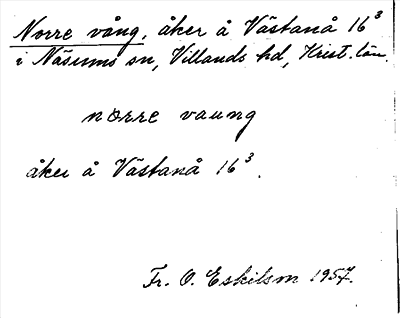 Norre vång, åker å Västanå 16³
i Näsums sn, Villands hd, Krist. län.
nörre vaung
åker å Västanå 16³.
Fr. O. Eskilson 1957.